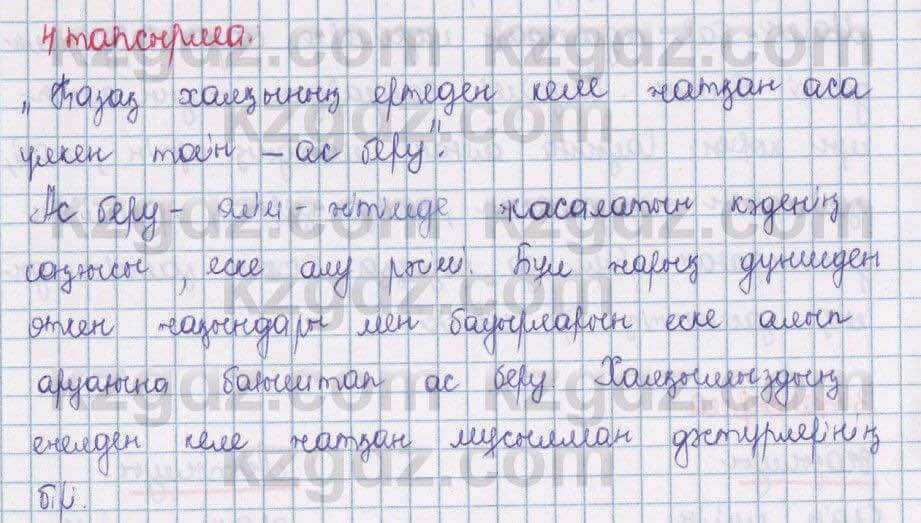 4 тапсырма.
„Қазақ халқының ертеден келе жатқан аса
үлкен тойн – ас беру".
Ас беру – өлім – жітімде жасалатын кәденің
соңғысы, еске алу рәсімі. Бұл жарық дүниеден
өткен жақындары мен бауырларын еске алып
аруағына бағыштап ас беру. Халқымыздың
ежелден келе жатқан мұсылман дәстүрлерінің
бірі.
kzgdz.com